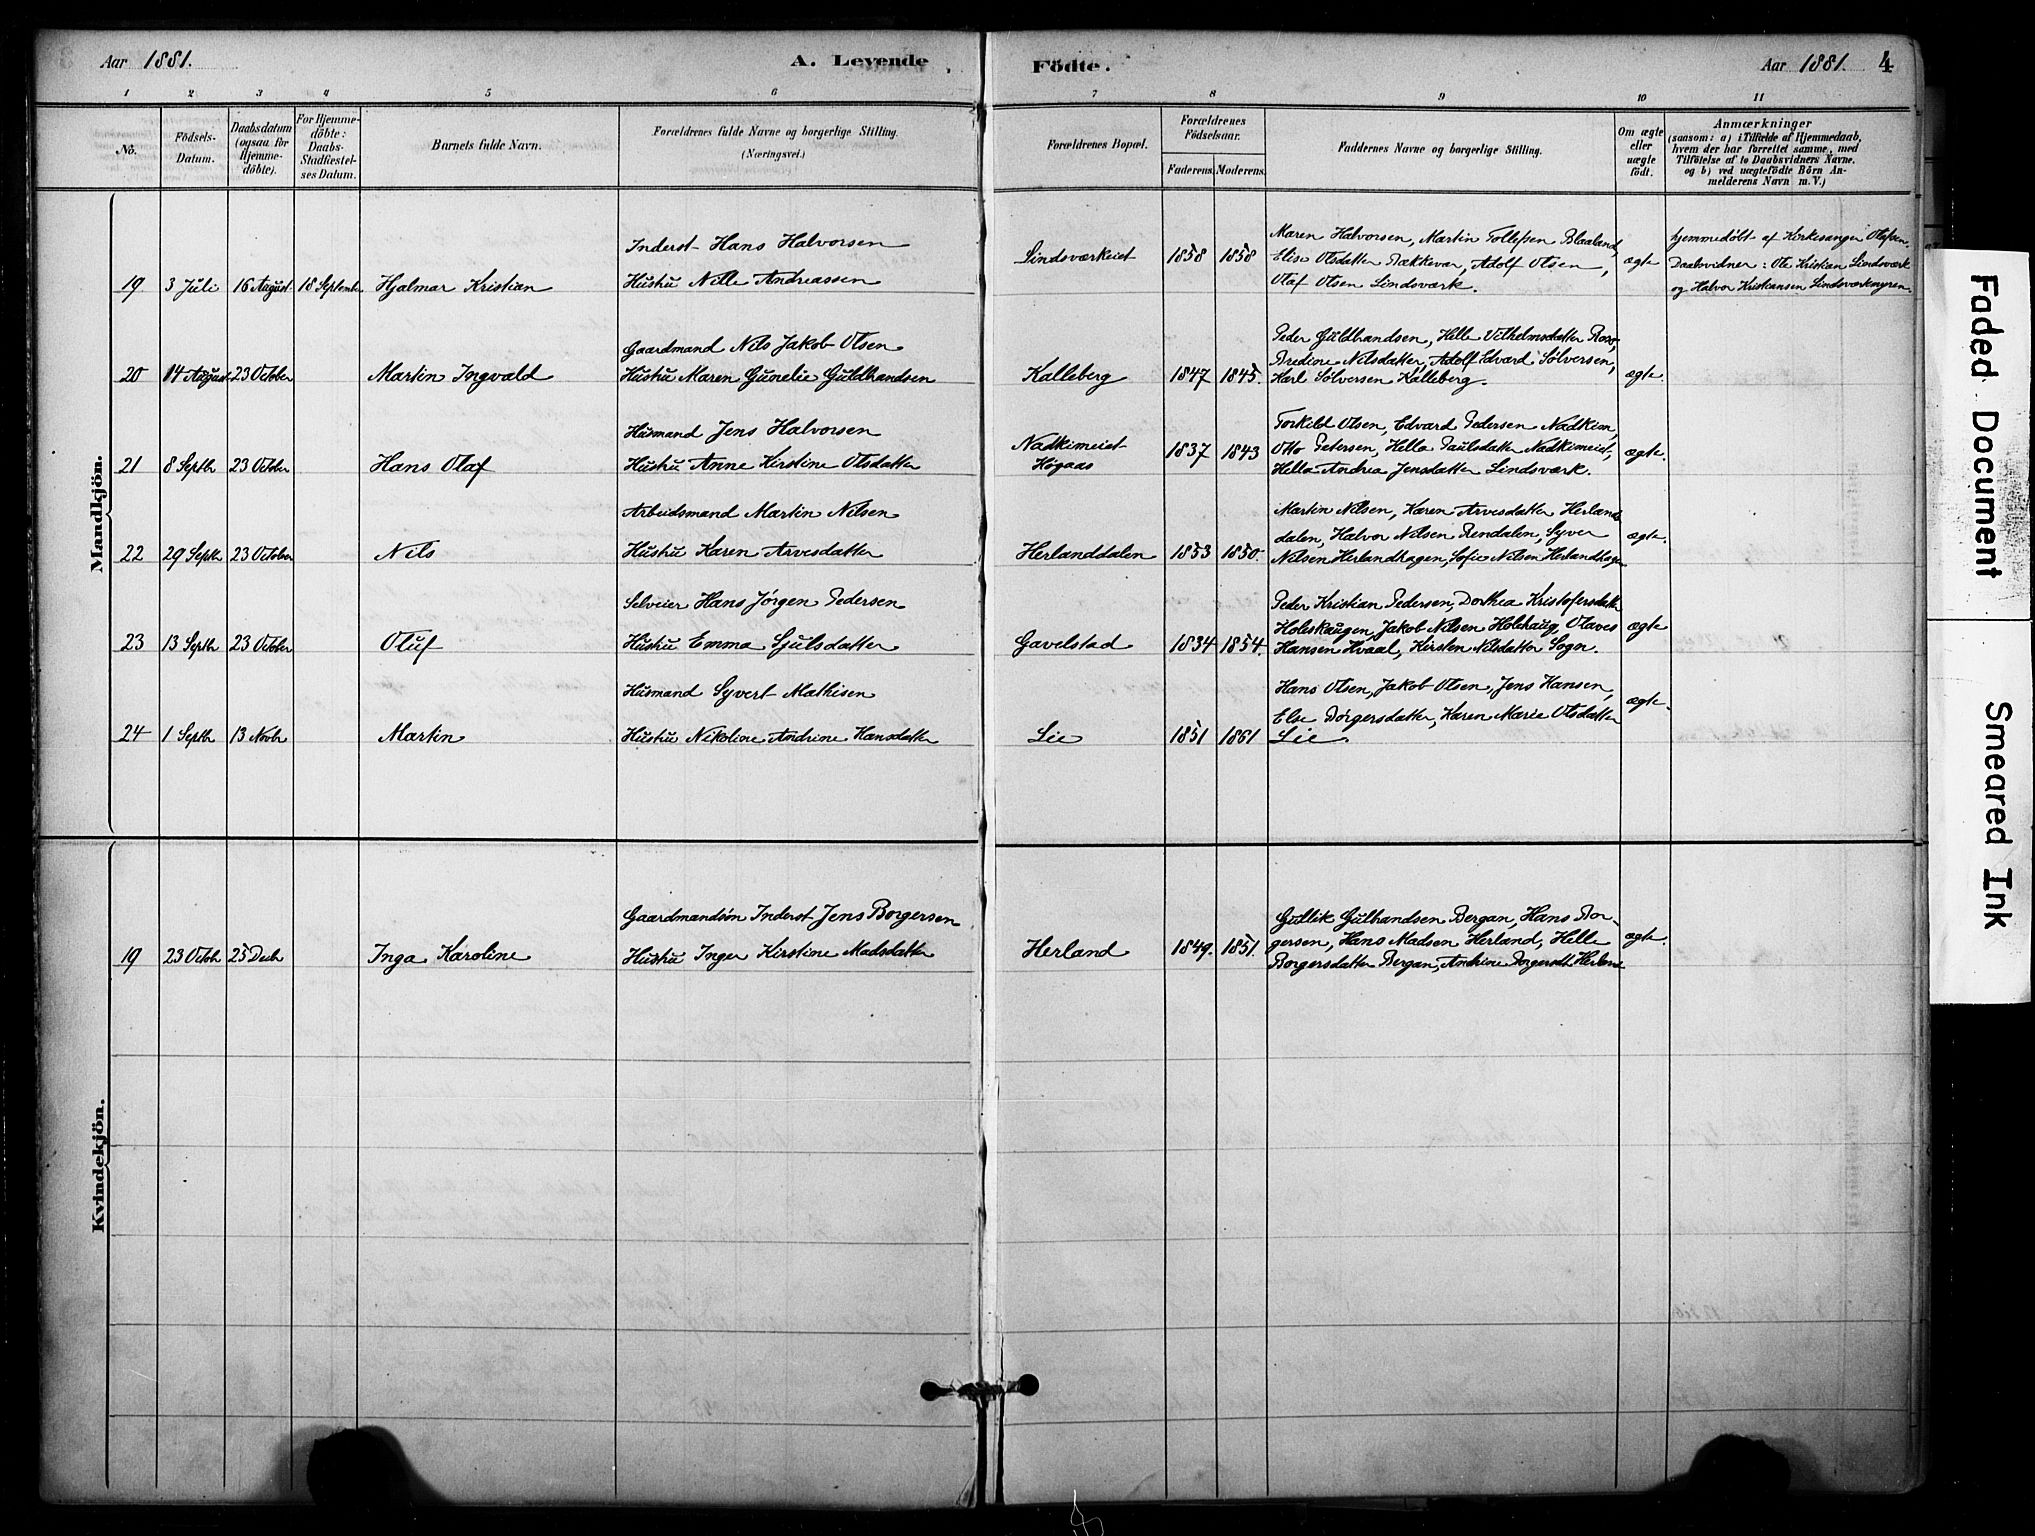 Aar 1881.
A. Levende
Födte.
Aar 1881. 4
1 2 3 4 5 6 7 8 9 10 11
No.
Födsels-
Datum.
Daabsdatum
(ogsaa for
Hjemme-
döbte).
For Hjemme-
döbte:
Daabs-
Stadfæstel-
ses Datum.
Barnets fulde Navn.
Forældrenes fulde Navne og borgerlige Stilling.
(Næringsvei.)
Forældrenes Bopæl.
Forældrenes
Födselsaar.
Faderens. Moderens.
Faddernes Navne og borgerlige Stilling.
Om ægte
eller
uægte
födt.
Anmærkninger
(saasom: a) i Tilfælde af Hjemmedaab,
hvem der har forrettet samme, med
Tilföielse af to Daabsvidners Navne.
og b) ved uægtefödte Börn An-
melderens Navn m. V.)
Mandkjön.
19 3 Juli 16 August 18 Septembr Hjalmar Kristian
Inderst Hans Halvorsen
Hustru Nille Andreassen
Lindsværkeiet 1858 1858
Maren Halvorsen, Martin Tollefsen Blaaland,
Elise Olsdatter Bækkevar, Adolf Olsen,
Olaf Olsen Lindsværk.
ægte
hjemmedøbt af Kirkesanger Olafsen.
Daabsvidner: Ole Kristian Lindsværk
og Halvor Kristiansen Lindsværkmyren.
20 14 August 23 October Martin Ingvald
Gaardmand Nils Jakob Olsen
Hustru Maren Gunelie Guldbrandsen
Kalleberg 1847 1845.
Peder Guldbrandsen, Helle Vilhelmsdatter Roso,
Bredine Nilsdatter, Adolf Edvard Sølversen,
Karl Sølversen Kalleberg.
ægte.
21 8 Septbr 23 October Hans Olaf
Husmand Jens Halvorsen
Hustru Anne Kirstine Olsdatter
Nadkimeiet
Høgaas
1837 1843
Torkild Olsen, Edvard Pedersen Nadkim,
Otto Petersen, Hella Paulsdatter Nadkimeiet,
Hella Andrea Jensdatter Lindsværk.
ægte.
22 29 Septbr 23 October Nils
Arbeidsmand Martin Nilsen
Hustru Karen Arvesdatter
Herlanddalen 1853 1850.
Martin Nilsen, Karen Arvesdatter Herland-
dalen, Halvor Nilsen Rendalen, Syver
Nilsen Herlandhagen, Sofie Nilsen Herlandhagen
ægte.
23 13 Septbr 23 October Oluf
Selveier Hans Jørgen Pedersen
Hustru Emma Sjulsdatter
Gavelstad 1834 1854.
Peder Kristian Pedersen, Dorthea Kristofersdatter
Holeskaugen, Jakob Nilsen Holehaug, Olaves
Hansen Hvaal, Kirsten Nilsdatter Sogn.
ægte
24 1 Septbr 13 Novbr Martin
Husmand Syvert Mathisen
Hustru Nikoline Andrine Hansdatter
Lie 1851 1861
Hans Olsen, Jakob Olsen, Jens Hansen,
Else Børgersdatter, Karen Marie Olsdatter
Lie.
ægte.
Kvindekjön.
19 23 Octob. 25 Decbr Inga Karoline
Gaardmandsøn Inderst Jens Borgersen
Hustru Inger Kirstine Madsdatter
Herland 1849. 1851.
Gullik Gulbrandsen Bergan, Hans Bor-
gersen, Hans Madsen Herland, Helle
Borgersdatter Bergan, Andrine Borgersdt Herland
ægte.
Faded Document
Smeared Ink